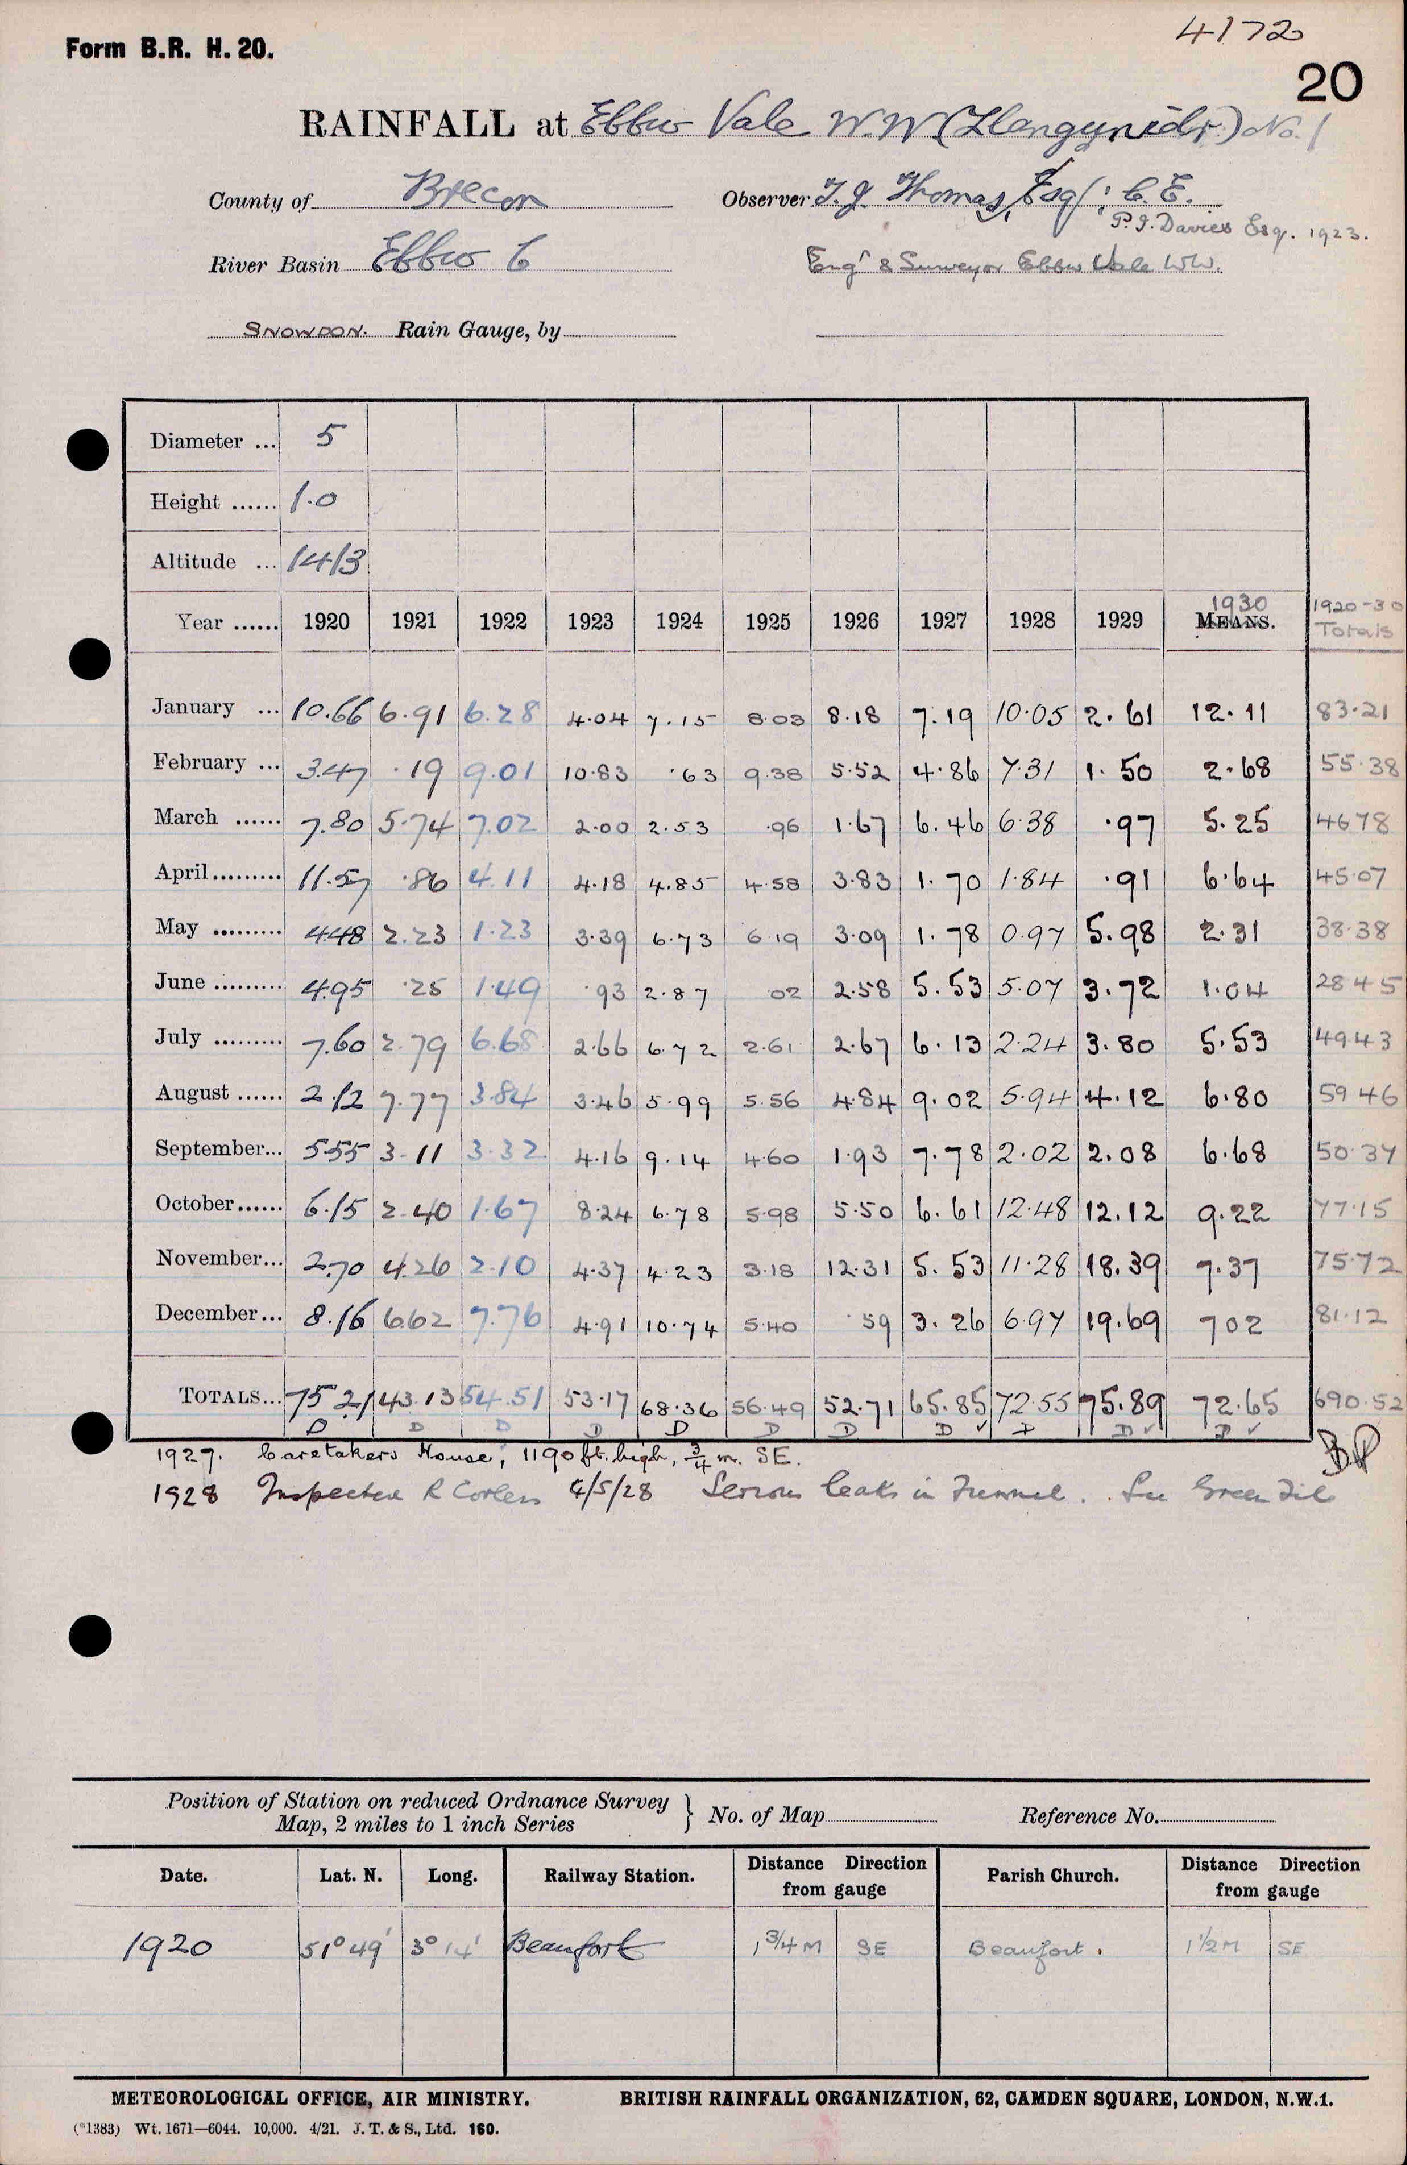 4172
Form B.R. H. 20.
20
RAINFALL at Ebbw Vale W.W. (Llangynidr) No. 1
County of Brecon Observer T. J. Thomas, Esq; C.E.
P. J. Davies Esq. 1923.
River Basin Ebbw 6 Engr & Surveyor Ebbw Vale WW.
SNOWDON. Rain Gauge, by
Diameter ... 5
Height ...... 1.0
Altitude ... 1413
Year ...... 1920 1921 1922 1923 1924 1925 1926 1927 1928 1929 1930 MEANS. 1920-30 Totals
January ... 10.66 6.91 6.28 4.04 7.15 8.03 8.18 7.19 10.05 2.61 12.11 83.21
February ... 3.47 .19 9.01 10.83 .63 9.38 5.52 4.86 7.31 1.50 2.68 55.38
March ...... 7.80 5.74 7.02 2.00 2.53 .96 1.67 6.46 6.38 .97 5.25 46 78
April ......... 11.57 .86 4.11 4.18 4.85 4.58 3.83 1.70 1.84 .91 6.64 45.07
May ......... 4.48 2.23 1.23 3.39 6.73 6.19 3.09 1.78 0.97 5.98 2.31 38.38
June ......... 4.95 .25 1.49 .93 2.87 .02 2.58 5.53 5.07 3.72 1.04 28 45
July ......... 7.60 2.79 6.68 2.66 6.72 2.61 2.67 6.13 2.24 3.80 5.53 49.43
August ...... 2.12 7.77 3.84 3.46 5.99 5.56 4.84 9.02 5.94 4.12 6.80 59 46
September... 5.55 3.11 3.32 4.16 9.14 4.60 1.93 7.78 2.02 2.08 6.68 50.37
October...... 6.15 2.40 1.67 8.24 6.78 5.98 5.50 6.61 12.48 12.12 9.22 77.15
November... 2.70 4.26 2.10 4.37 4.23 3.18 12.31 5.53 11.28 18.39 7.37 75.72
December... 8.16 6.62 7.76 4.91 10.74 5.40 .59 3.26 6.97 19.69 7 02 81.12
TOTALS... 75.21 43.13 54.51 53.17 68.36 56.49 52.71 65.85 72.55 75.89 72.65 690.52
D D D D D D D D ✓ D D ✓ D ✓
1927. Caretakers House, 1190 ft. high, 3/4 m. SE.
1928 Inspected R Corless 4/5/28 Serious leaks in Funnel. See Green File
Position of Station on reduced Ordnance Survey
Map, 2 miles to 1 inch Series } No. of Map Reference No.
Date. Lat. N. Long. Railway Station. Distance Direction from gauge Parish Church. Distance Direction from gauge
1920 51° 49' 3° 14' Beaufort 1 3/4 M SE Beaufort. 1 1/2 M SE
METEOROLOGICAL OFFICE, AIR MINISTRY. BRITISH RAINFALL ORGANIZATION, 62, CAMDEN SQUARE, LONDON, N.W.1.
(*1383) Wt. 1671—6044. 10,000. 4/21. J. T. & S., Ltd. 160.